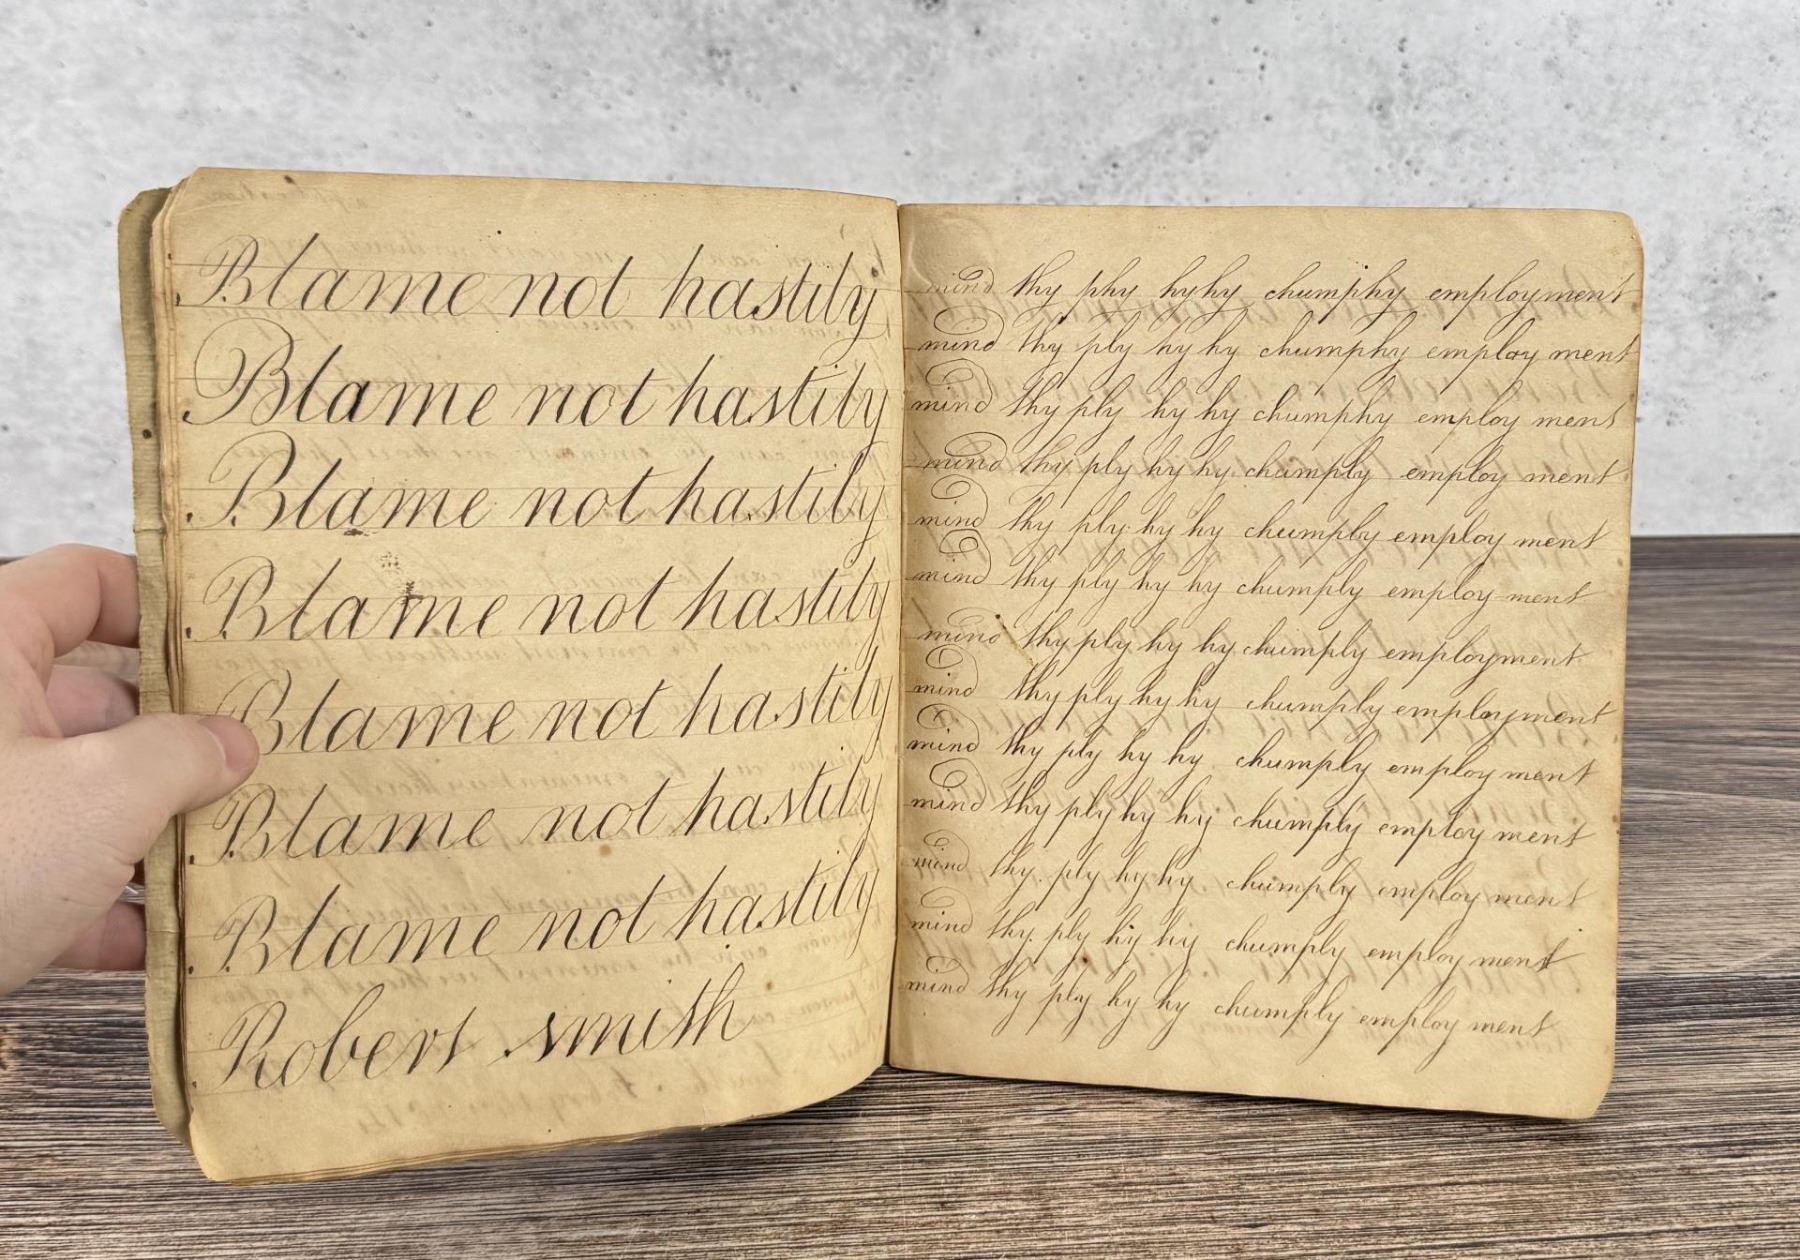 Blame not hastily
Blame not hastily
Blame not hastily
Blame not hastily
Blame not hastily
Blame not hastily
Blame not hastily
Robert smith
mind thy phy hy hy chumphy employment
mind thy ply hy hy chumphy employ ment
mind thy ply hy hy chumphy employ ment
mind thy ply hy hy chumply employ ment
mind thy ply hy hy chumply employ ment
mind thy ply hy hy chumply employ ment
mind thy ply hy hy chumply employment
mind thy ply hy hy chumply employment
mind thy ply hy hy chumply employ ment
mind thy ply hy hy chumply employ ment
mind thy ply hy hy chumply employ ment
mind thy ply hy hy chumply employ ment
mind thy ply hy hy chumply employ ment